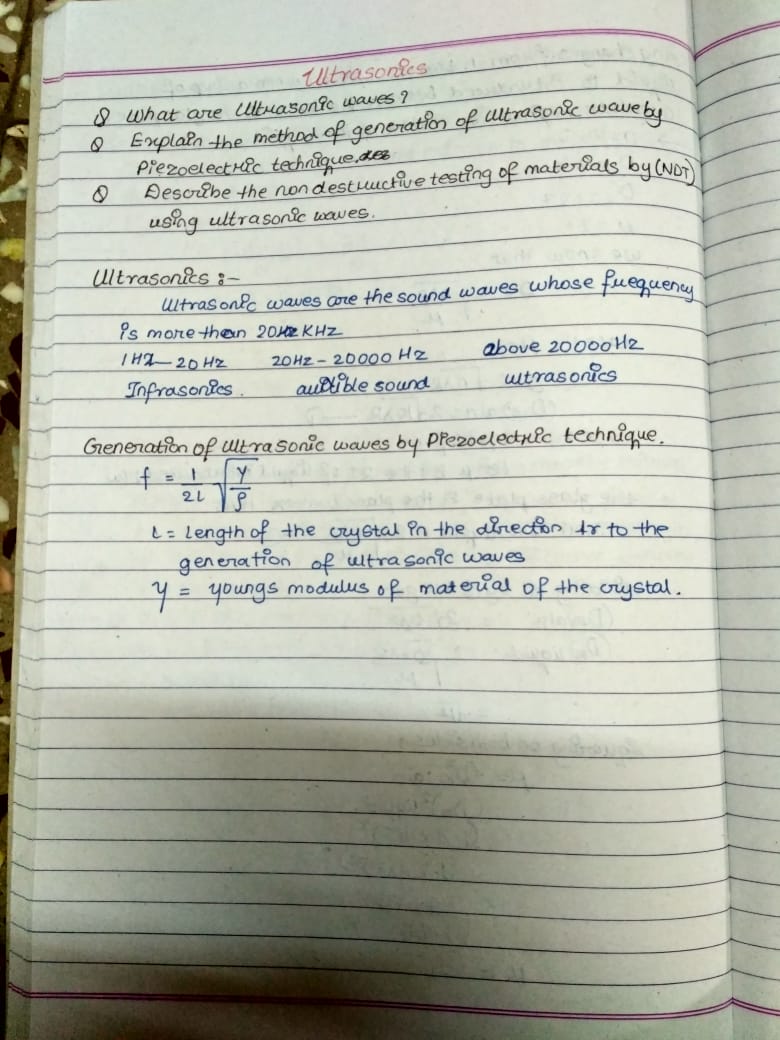 Ultrasonics
Q What are Ultrasonic waves?
Q Explain the method of generation of ultrasonic wave by
Piezoelectric technique.
Q Describe the non destructive testing of materials by (NDT)
using ultrasonic waves.
Ultrasonics :-
Ultrasonic waves are the sound waves whose frequency
is more than 20 KHZ
1HZ — 20 HZ 20HZ - 20000 HZ above 20000 HZ
Infrasonics. audible sound ultrasonics
Generation of ultrasonic waves by Piezoelectric technique.
f = 1/2l √(Y/ρ)
L = Length of the crystal in the direction ⊥r to the
generation of ultrasonic waves
Y = youngs modulus of material of the crystal.